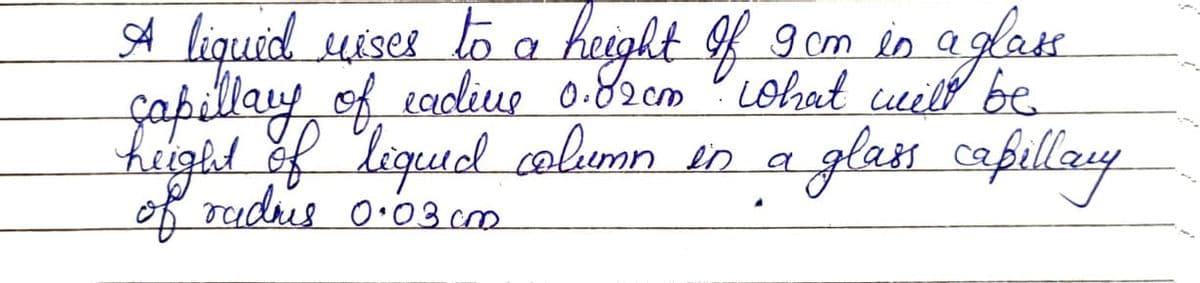 A liquid rises to a height of 9 cm in a glass
capillary of radius 0.02 cm. What will be
height of liquid column in a glass capillary
of radius 0.03 cm